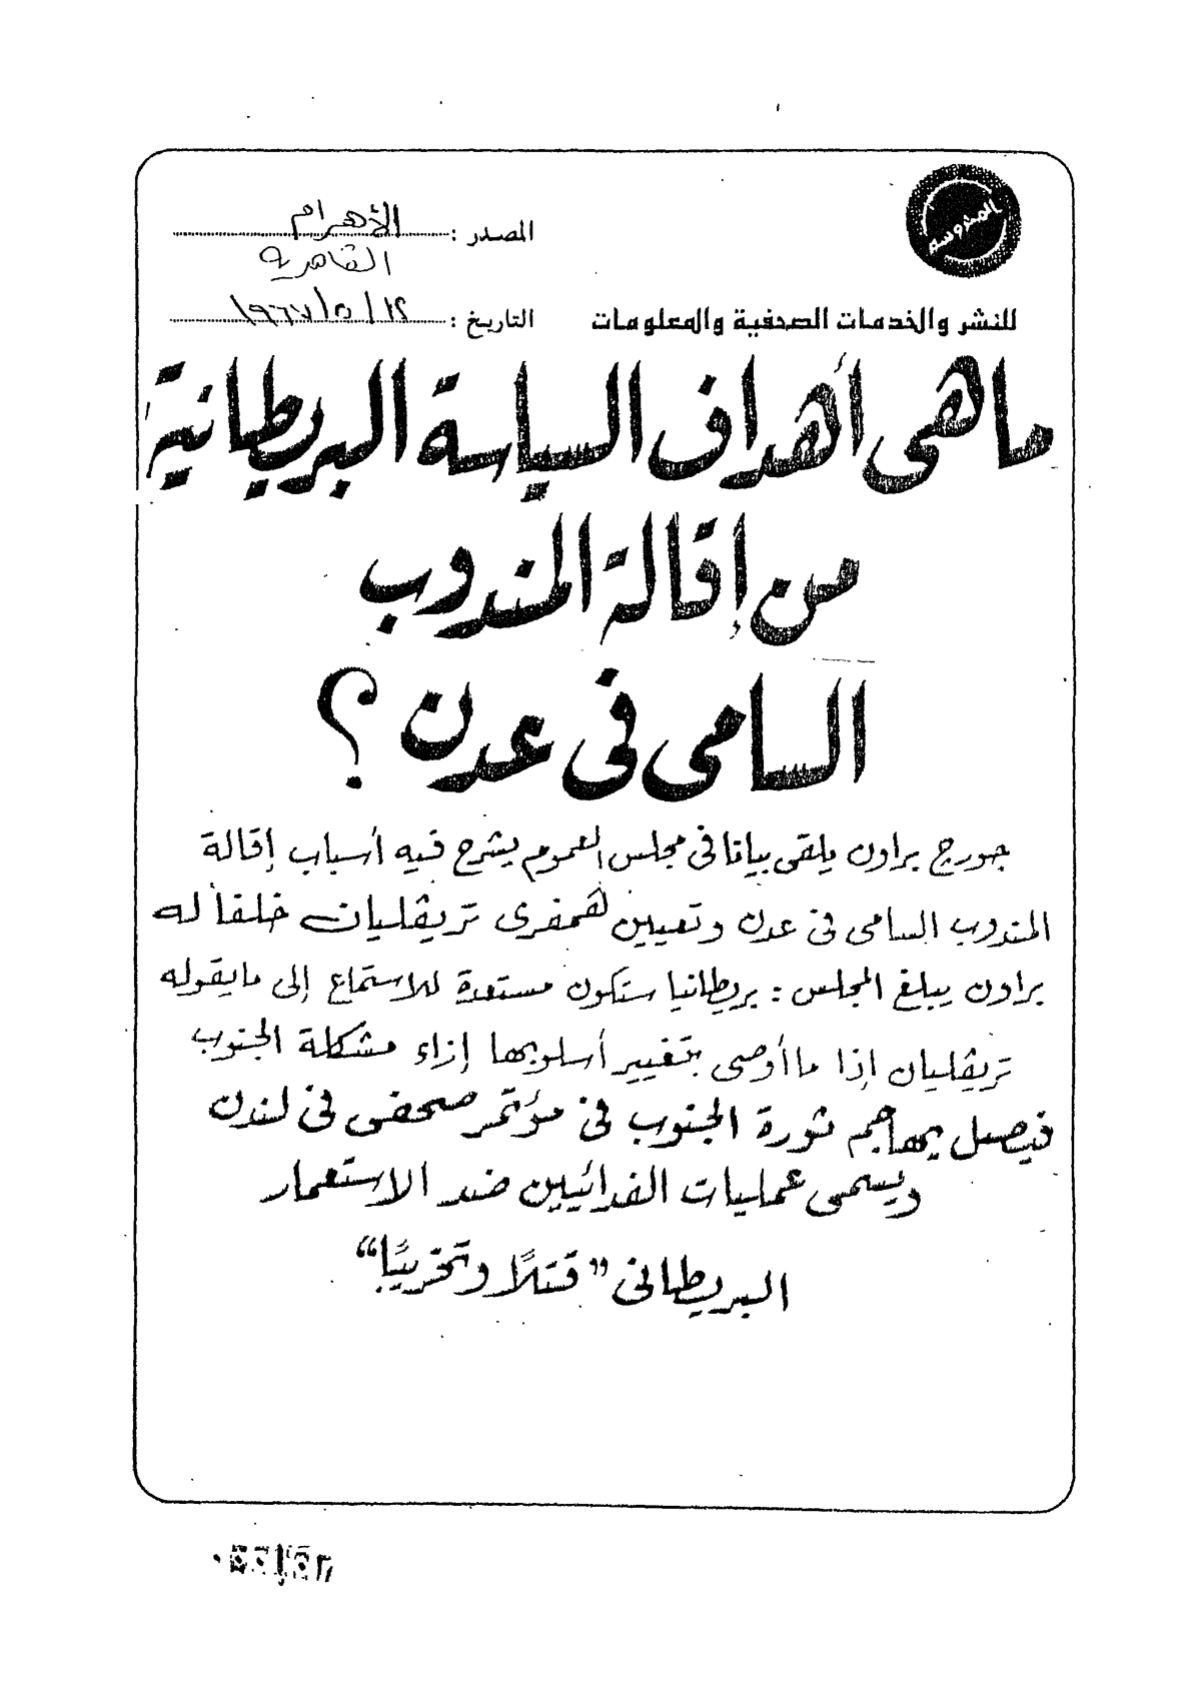 المحروسة
المصدر : الأهرام
القاهرية
للنشر والخدمات الصحفية والمعلومات
التاريخ : ١٢ / ٥ / ١٩٦٧
ما هى أهداف السياسة البريطانية
من إقالة المندوب
السامى فى عدن ؟
جورج براون يلقى بيانا فى مجلس العموم يشرح فيه أسباب إقالة
المندوب السامى فى عدن وتعيين همفرى تريڤليان خلفا له
براون يبلغ المجلس : بريطانيا ستكون مستعدة للاستماع إلى ما يقوله
تريڤليان إذا ما أوصى بتغيير أسلوبها إزاء مشكلة الجنوب
فيصل يهاجم ثورة الجنوب فى مؤتمر صحفى فى لندن
ويسمى عمليات الفدائيين ضد الاستعمار
البريطانى "قتلًا وتخريبًا"